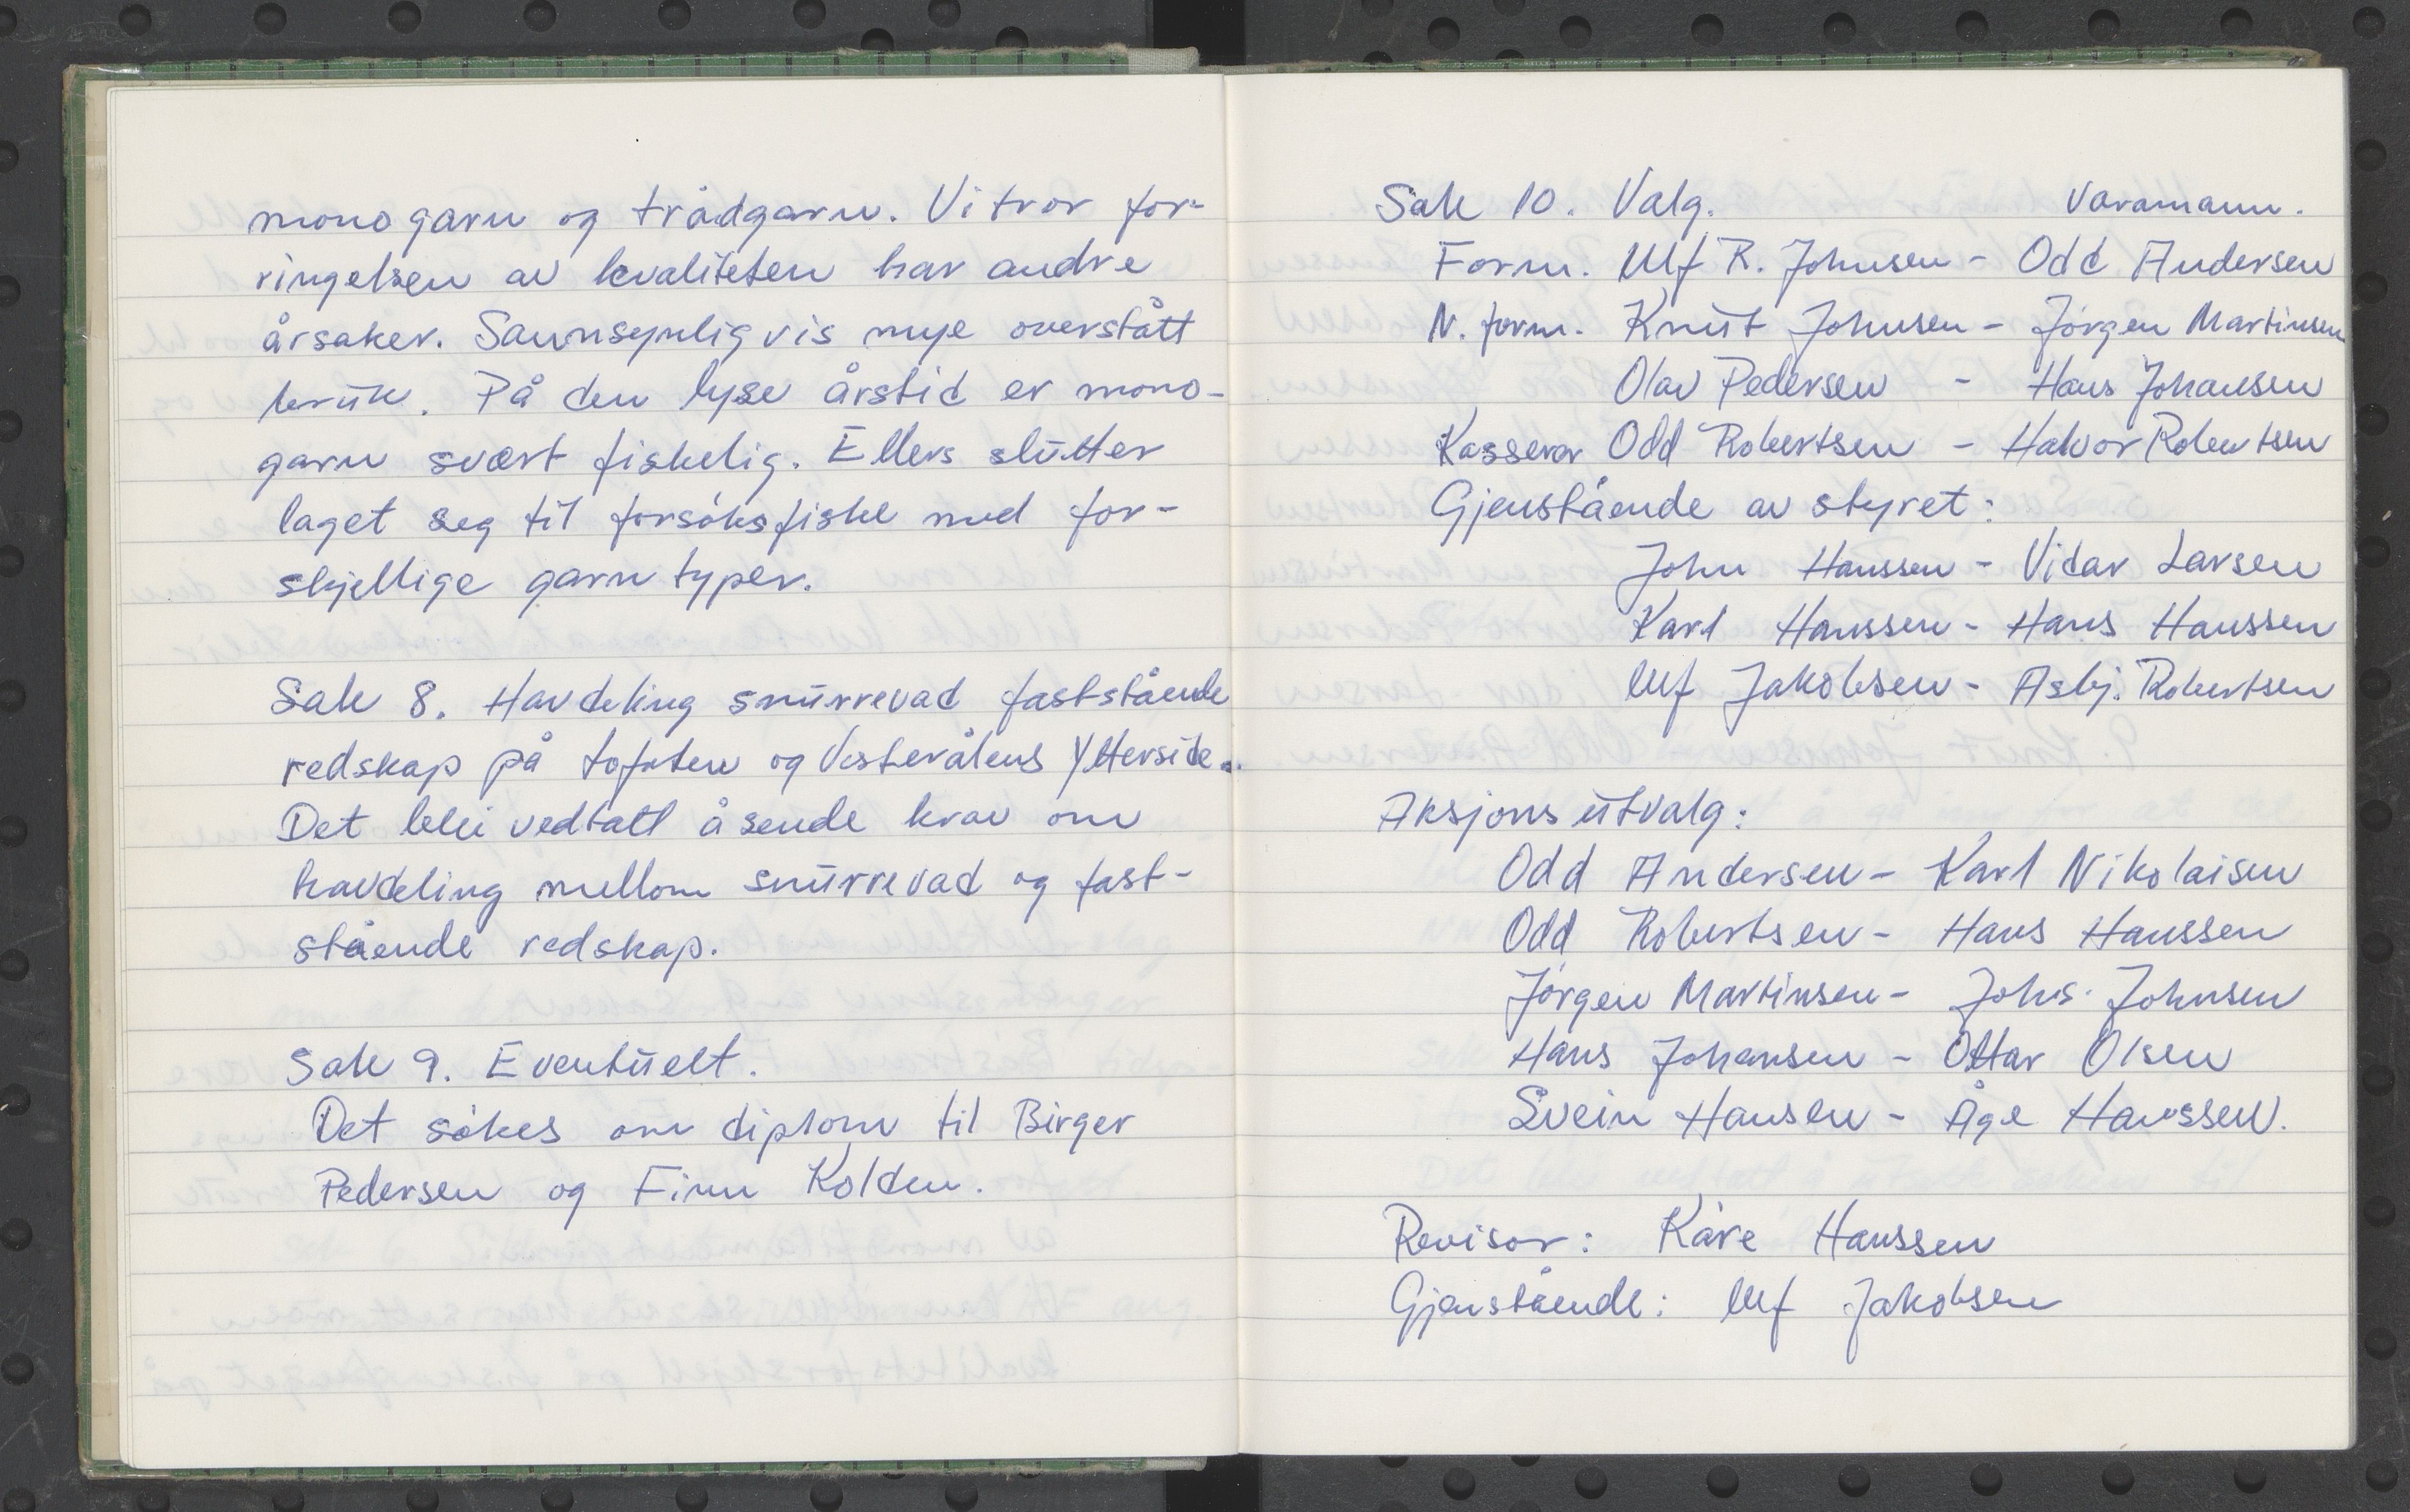 mono garn og trådgarn. Vi tror for-
ringelsen av kvaliteten har andre
årsaker. Sannsynligvis mye overstått
bruk. På den lyse årstid er mono-
garn svært fiskelig. Ellers slutter
laget seg til forsöksfiske med for-
skjellige garn typer.
Sak 8. Havdeling snurrevad faststående
redskap på Lofoten og Vesterålens Ytterside.
Det blei vedtatt å sende krav om
havdeling mellom snurrevad og fast-
stående redskap.
Sak 9. Eventuelt.
Det sökes om diplom til Birger
Pedersen og Finn Kolden.
Sak 10. Valg. Varamann.
Form. Ulf R. Johnsen - Odd Andersen
N. form. Knut Johnsen - Jörgen Martinsen
Olav Pedersen - Hans Johansen
Kasserer Odd Robertsen - Halvor Robertsen
Gjenstående av styret:
John Hanssen - Vidar Larsen
Karl Hanssen - Hans Hanssen
Ulf Jakobsen - Asbj. Robertsen
Aksjonsutvalg:
Odd Andersen - Karl Nikolaisen
Odd Robertsen - Hans Hanssen
Jörgen Martinsen - Johs. Johnsen
Hans Johansen - Ottar Olsen
Svein Hansen - Åge Hanssen.
Revisor: Kåre Hanssen
Gjenstående: Ulf Jakobsen